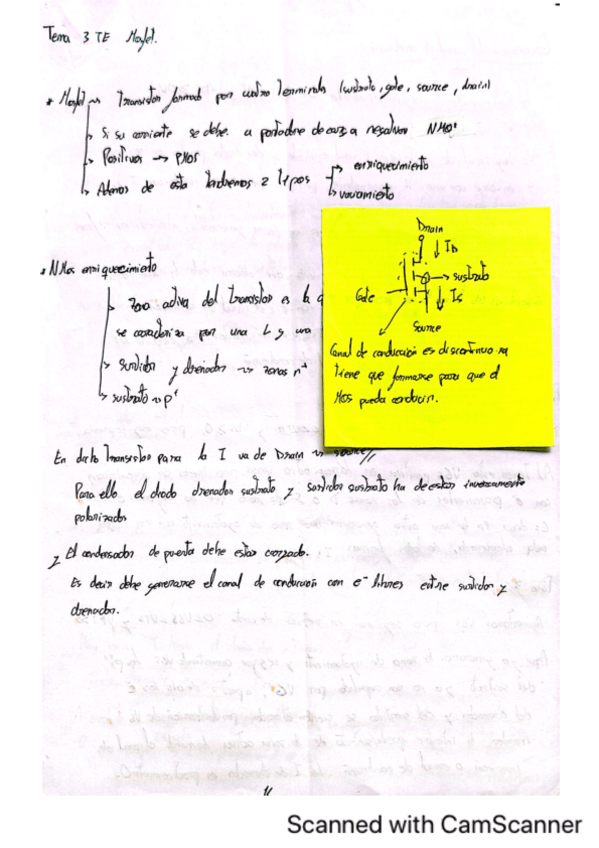 Tema 3 TE Mosfet.
• Mosfet → Transistor formado por cuatro terminales (sustrato, gate, source, drain)
→ Si su corriente se debe a portadores de carga negativos NMOS
→ Positivos → PMOS
→ Además de esto tendremos 2 tipos → enriquecimiento
→ vaciamiento
• NMos enriquecimiento
→ Zona activa del transistor es la
se caracteriza por una L y una
→ surtidor y drenador → zonas n⁺
→ sustrato → p
Drain
ID
→ sustrato
Gate
IS
Source
Canal de conducción es discontinuo ya
tiene que formarse para que el
Mos pueda conducir.
En dicho transistor para la I va de Drain → source
Para ello el diodo drenador sustrato y surtidor sustrato ha de estar inversamente
polarizados
y El condensador de puerta debe estar cargado.
Es decir debe generarse el canal de conducción con e⁻ libres entre surtidor y
drenador.
Scanned with CamScanner